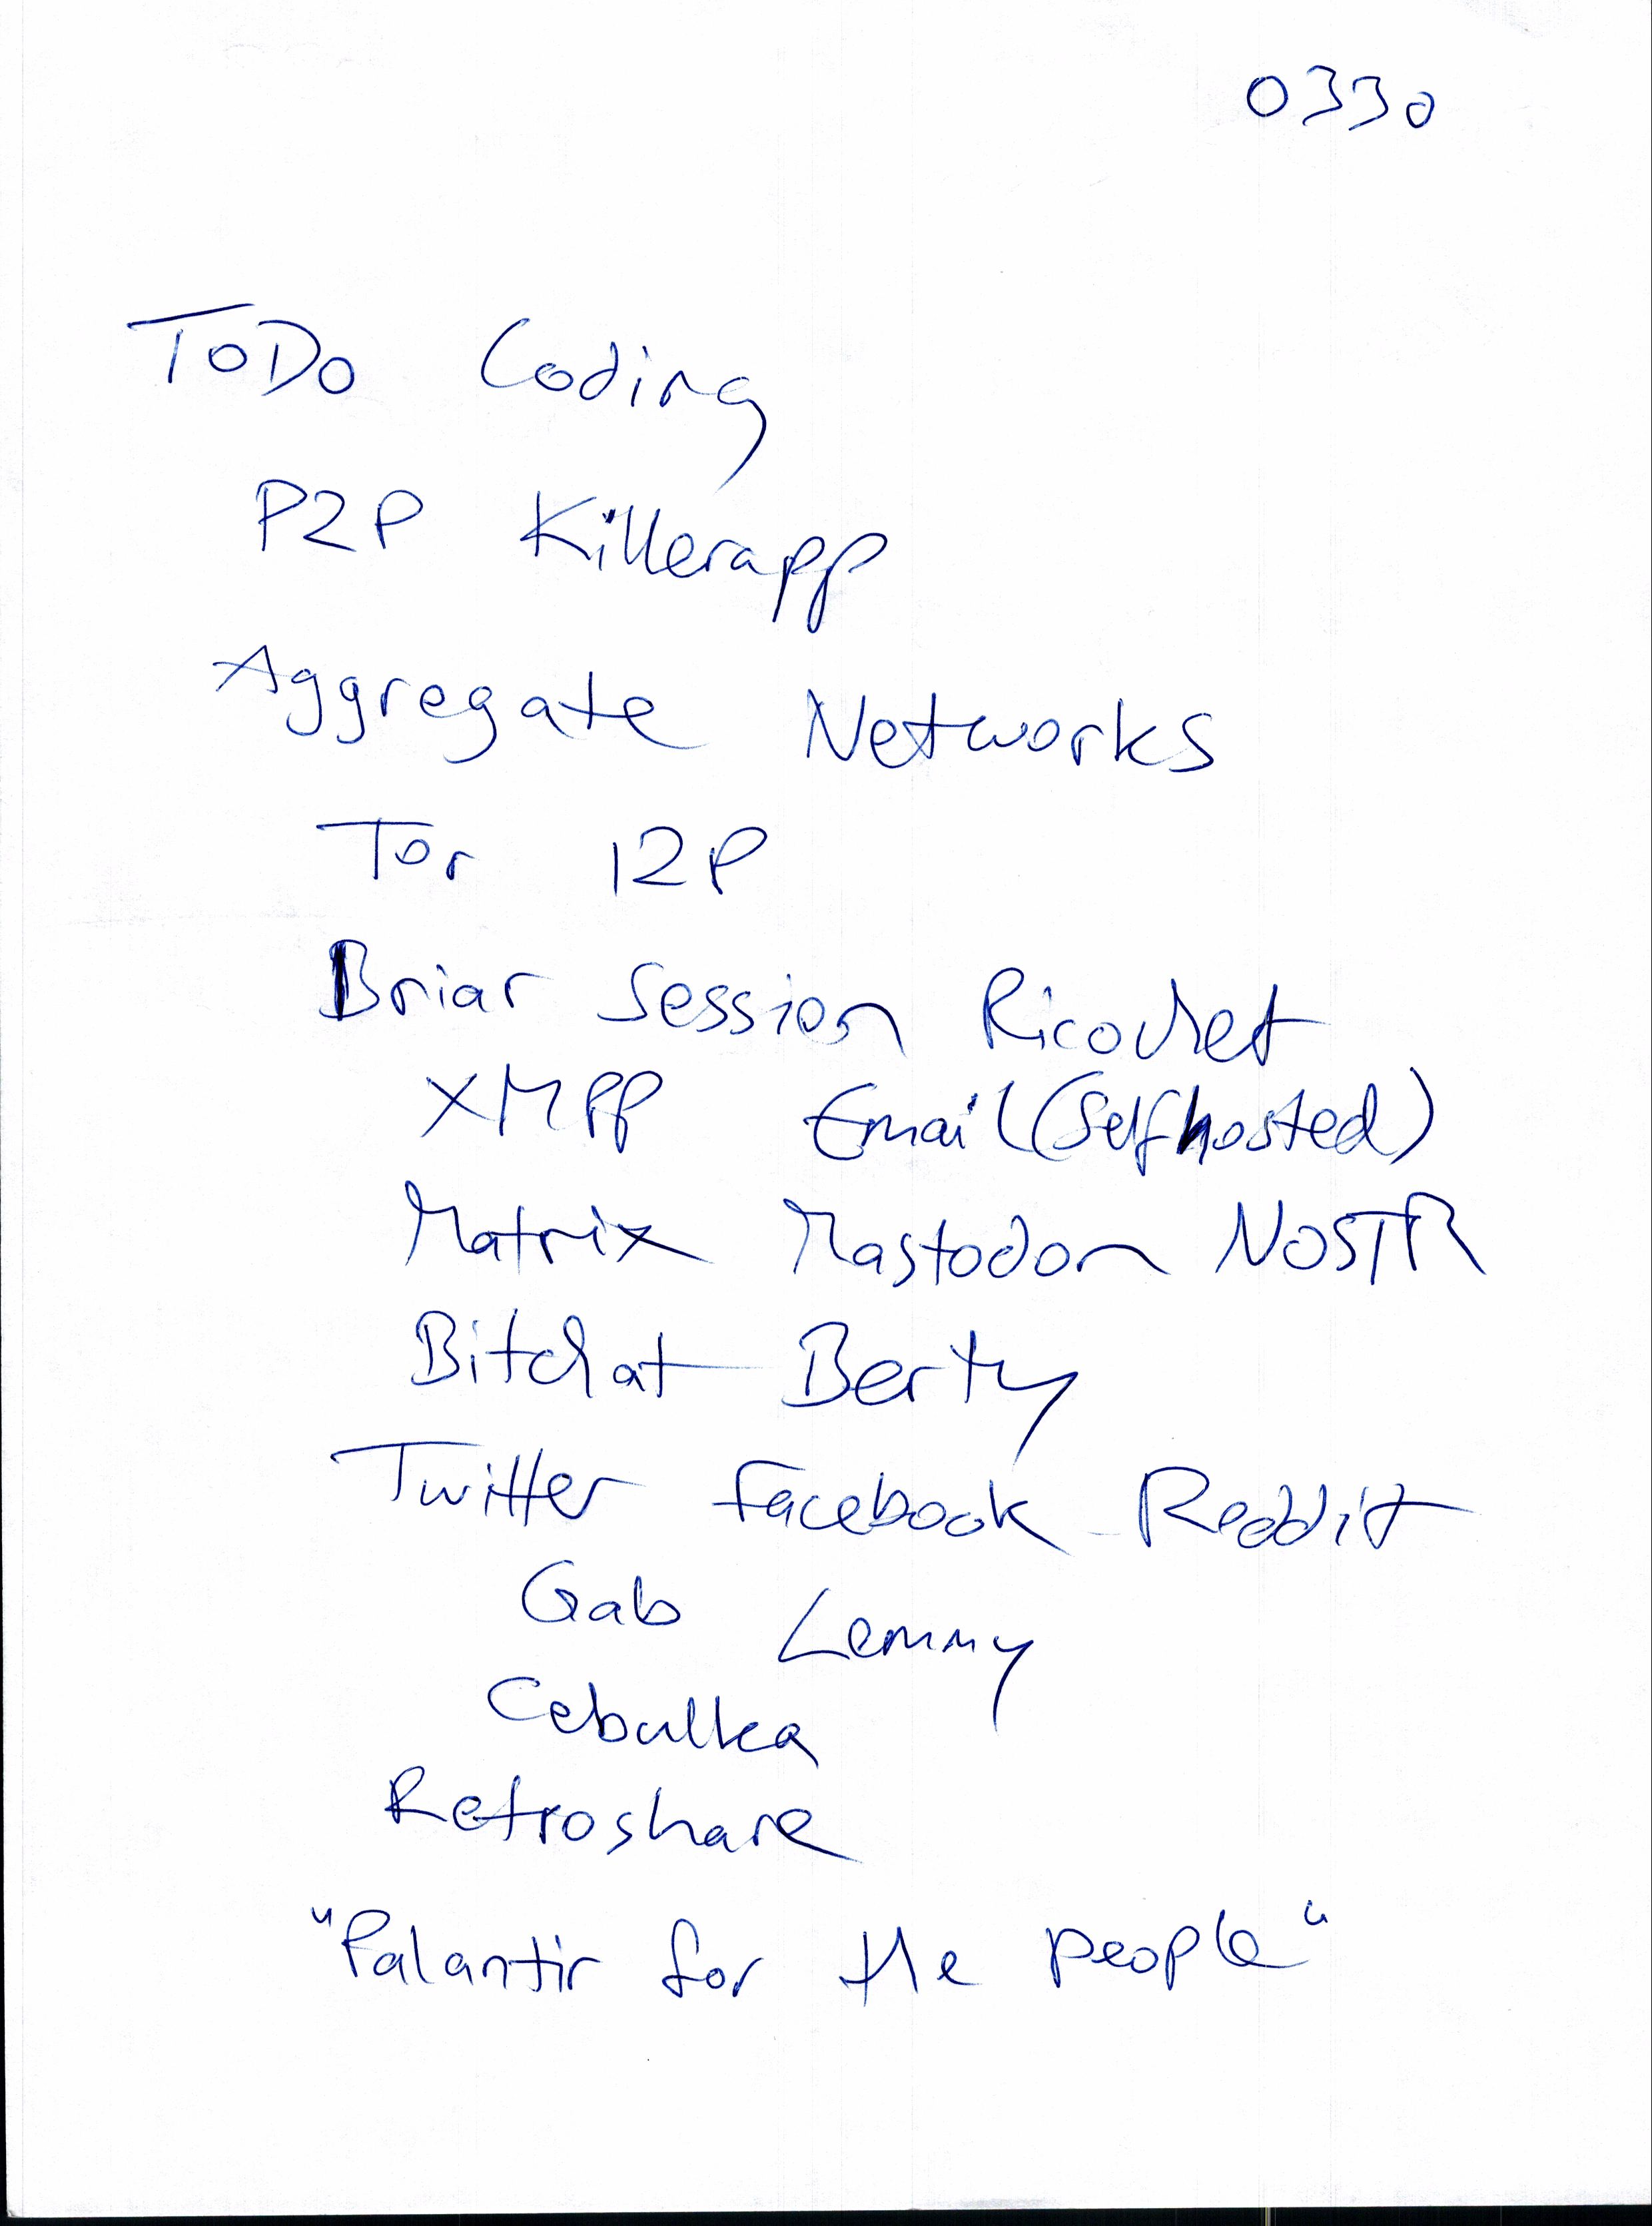 0330
ToDo Coding
P2P Killerapp
Aggregate Networks
Tor I2P
Briar Session Ricochet
XMPP Email (Selfhosted)
Matrix Mastodon NOSTR
Bitchat Berty
Twitter Facebook Reddit
Gab Lemmy
Cebulka
Retroshare
"Palantir for the people"